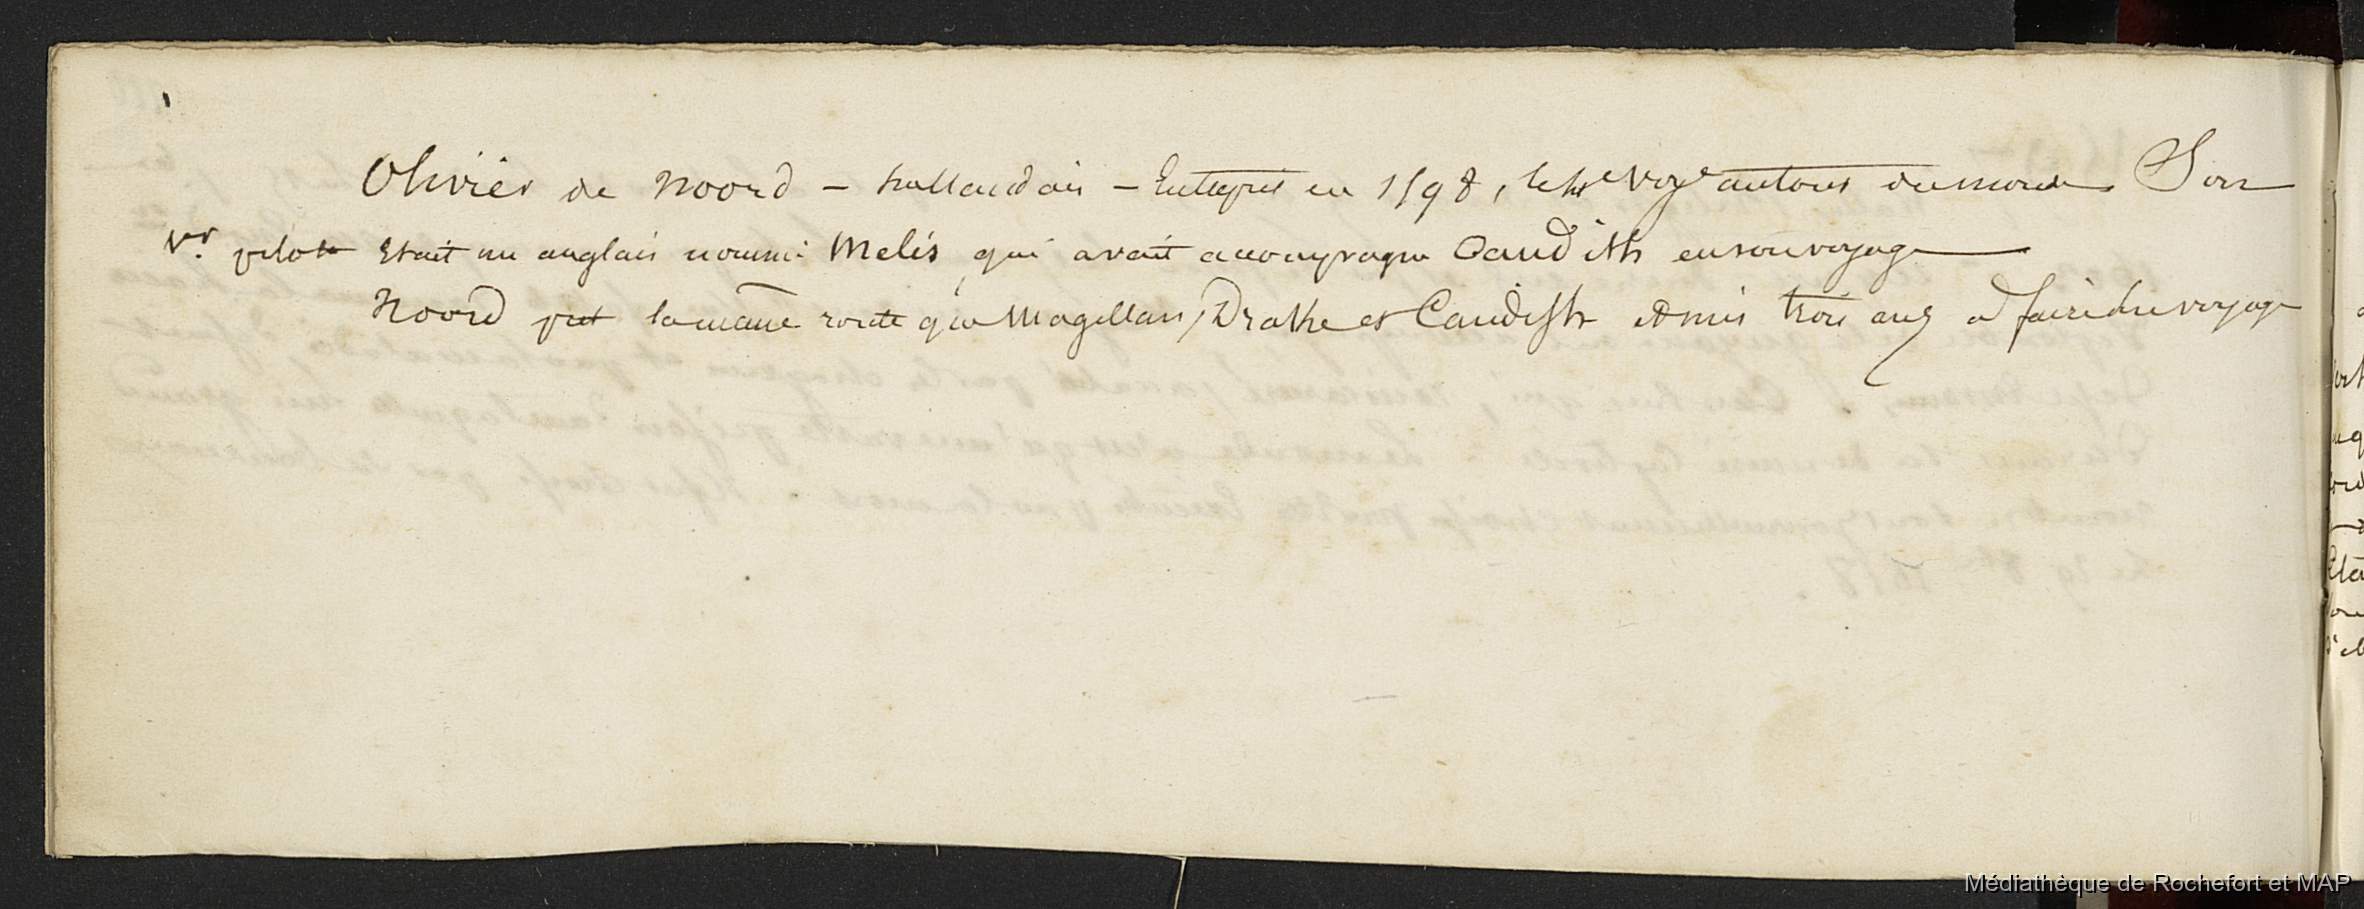 Olivier de Noord – hollandais – Entreprit en 1598, le 4e Voye autour du monde. Son
1er pilote Etait un anglais nommé Melis, qui avait accompagné Candish en son voyage
Noord prit la même route que Magellan, Drake et Candish et mis trois ans à faire le voyage
Médiathèque de Rochefort et MAP